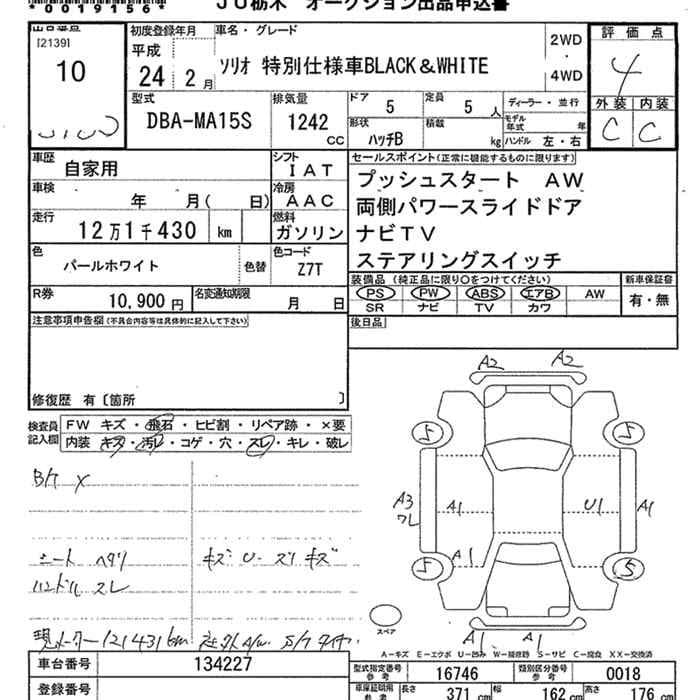 *00019156*
JU栃木 オークション出品申込書
出品番号
[2139]
10
初度登録年月
平成
24 2月
車名・グレード
ソリオ 特別仕様車BLACK&WHITE
2WD
・
4WD
評価点
4
外装 内装
C C
型式
DBA-MA15S
排気量
1242
CC
ドア
5
定員
5 人
形状
ハッチB
積載
kg
ディーラー・並行
モデル年式 年
ハンドル 左・右
車歴
自家用
シフト
IAT
車検
年 月( 日)
冷房
AAC
走行
12万1千430 km
燃料
ガソリン
色
パールホワイト
色替
色コード
Z7T
R券
10,900円
名変通知期限
月 日
セールスポイント(正常に機能するものに限ります)
プッシュスタート AW
両側パワースライドドア
ナビTV
ステアリングスイッチ
装備品(純正品に限り○をつけてください)
PS PW ABS エアB AW
SR ナビ TV カワ
新車保証書
有・無
後日品
注意事項申告欄(不具合内容等は具体的に記入して下さい)
修復歴 有〔箇所 〕
検査員記入欄
FW キズ・飛石・ヒビ割・リペア跡・×要
内装・キズ・汚レ・コゲ・穴・スレ・キレ・破レ
シート ヘタリ
キズ U スリキズ
ハンドル スレ
現メーター121431km
A2 A2
5 5
A3
ワレ
A1 U1 A1
A1
5 5
スペア
A1 A1
A−キズ E−エクボ U−凹み W−補修跡 S−サビ C−腐食 XX−交換済
車台番号
134227
登録番号
型式指定番号
参考
16746
類別区分番号
参考
0018
車庫証明用
参考
長さ
371 cm
幅
162 cm
高さ
176 cm